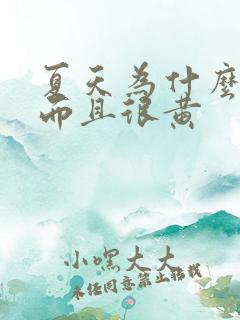 夏天为什麼
而且很黄
小嘿大大
未经同意禁止转载